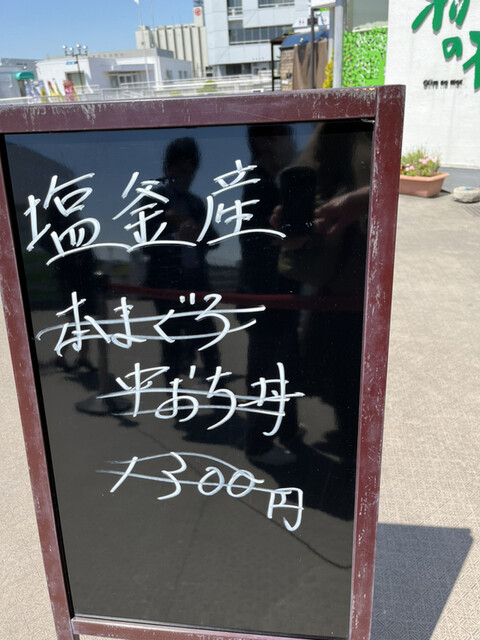 塩釜産
本まぐろ
中おち丼
1300円
の